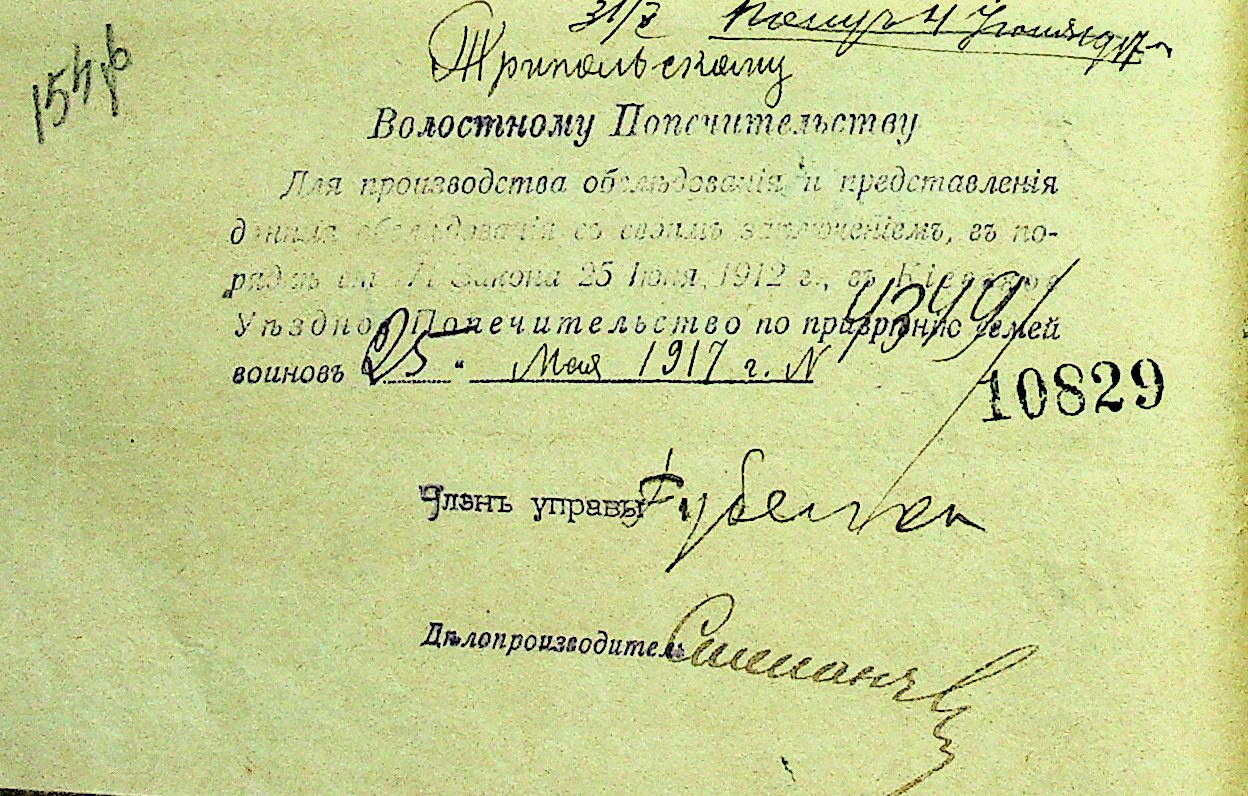 31/7 Получ 4 Іюня 1917 г
154
Трипольскому
Волостному Попечительству
Для производства обслѣдованія и представленія
данныхъ обслѣдованія со своимъ заключеніемъ, въ по-
рядкѣ ст. Закона 25 Іюня 1912 г., въ Кіевское
Уѣздное Попечительство по призрѣнію семей
воиновъ 25 " Мая 1917 г. N 4349/
10829
Членъ управы
Дѣлопроизводитель